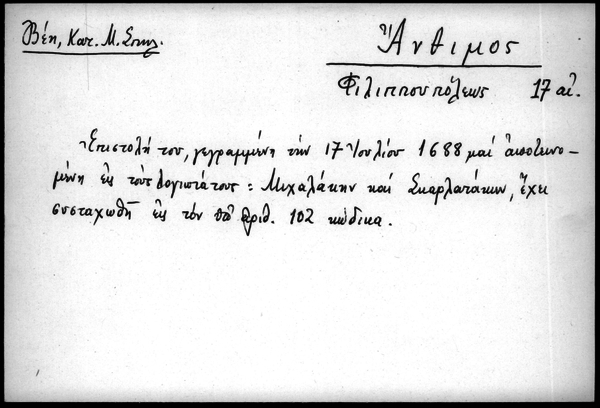 Βέη, Κατ. Μ. Σπηλ.
Ἄνθιμος
Φιλιππουπόλεως 17 αἰ.
Ἐπιστολή του, γεγραμμένη τὴν 17 Ἰουλίου 1688 καὶ ἀποτεινο-
μένη εἰς τοὺς λογιωτάτους: Μιχαλάκην καὶ Σκαρλατάκην, ἔχει
συσταχωθῆ εἰς τὸν ὑπ' ἀριθ. 102 κώδικα.